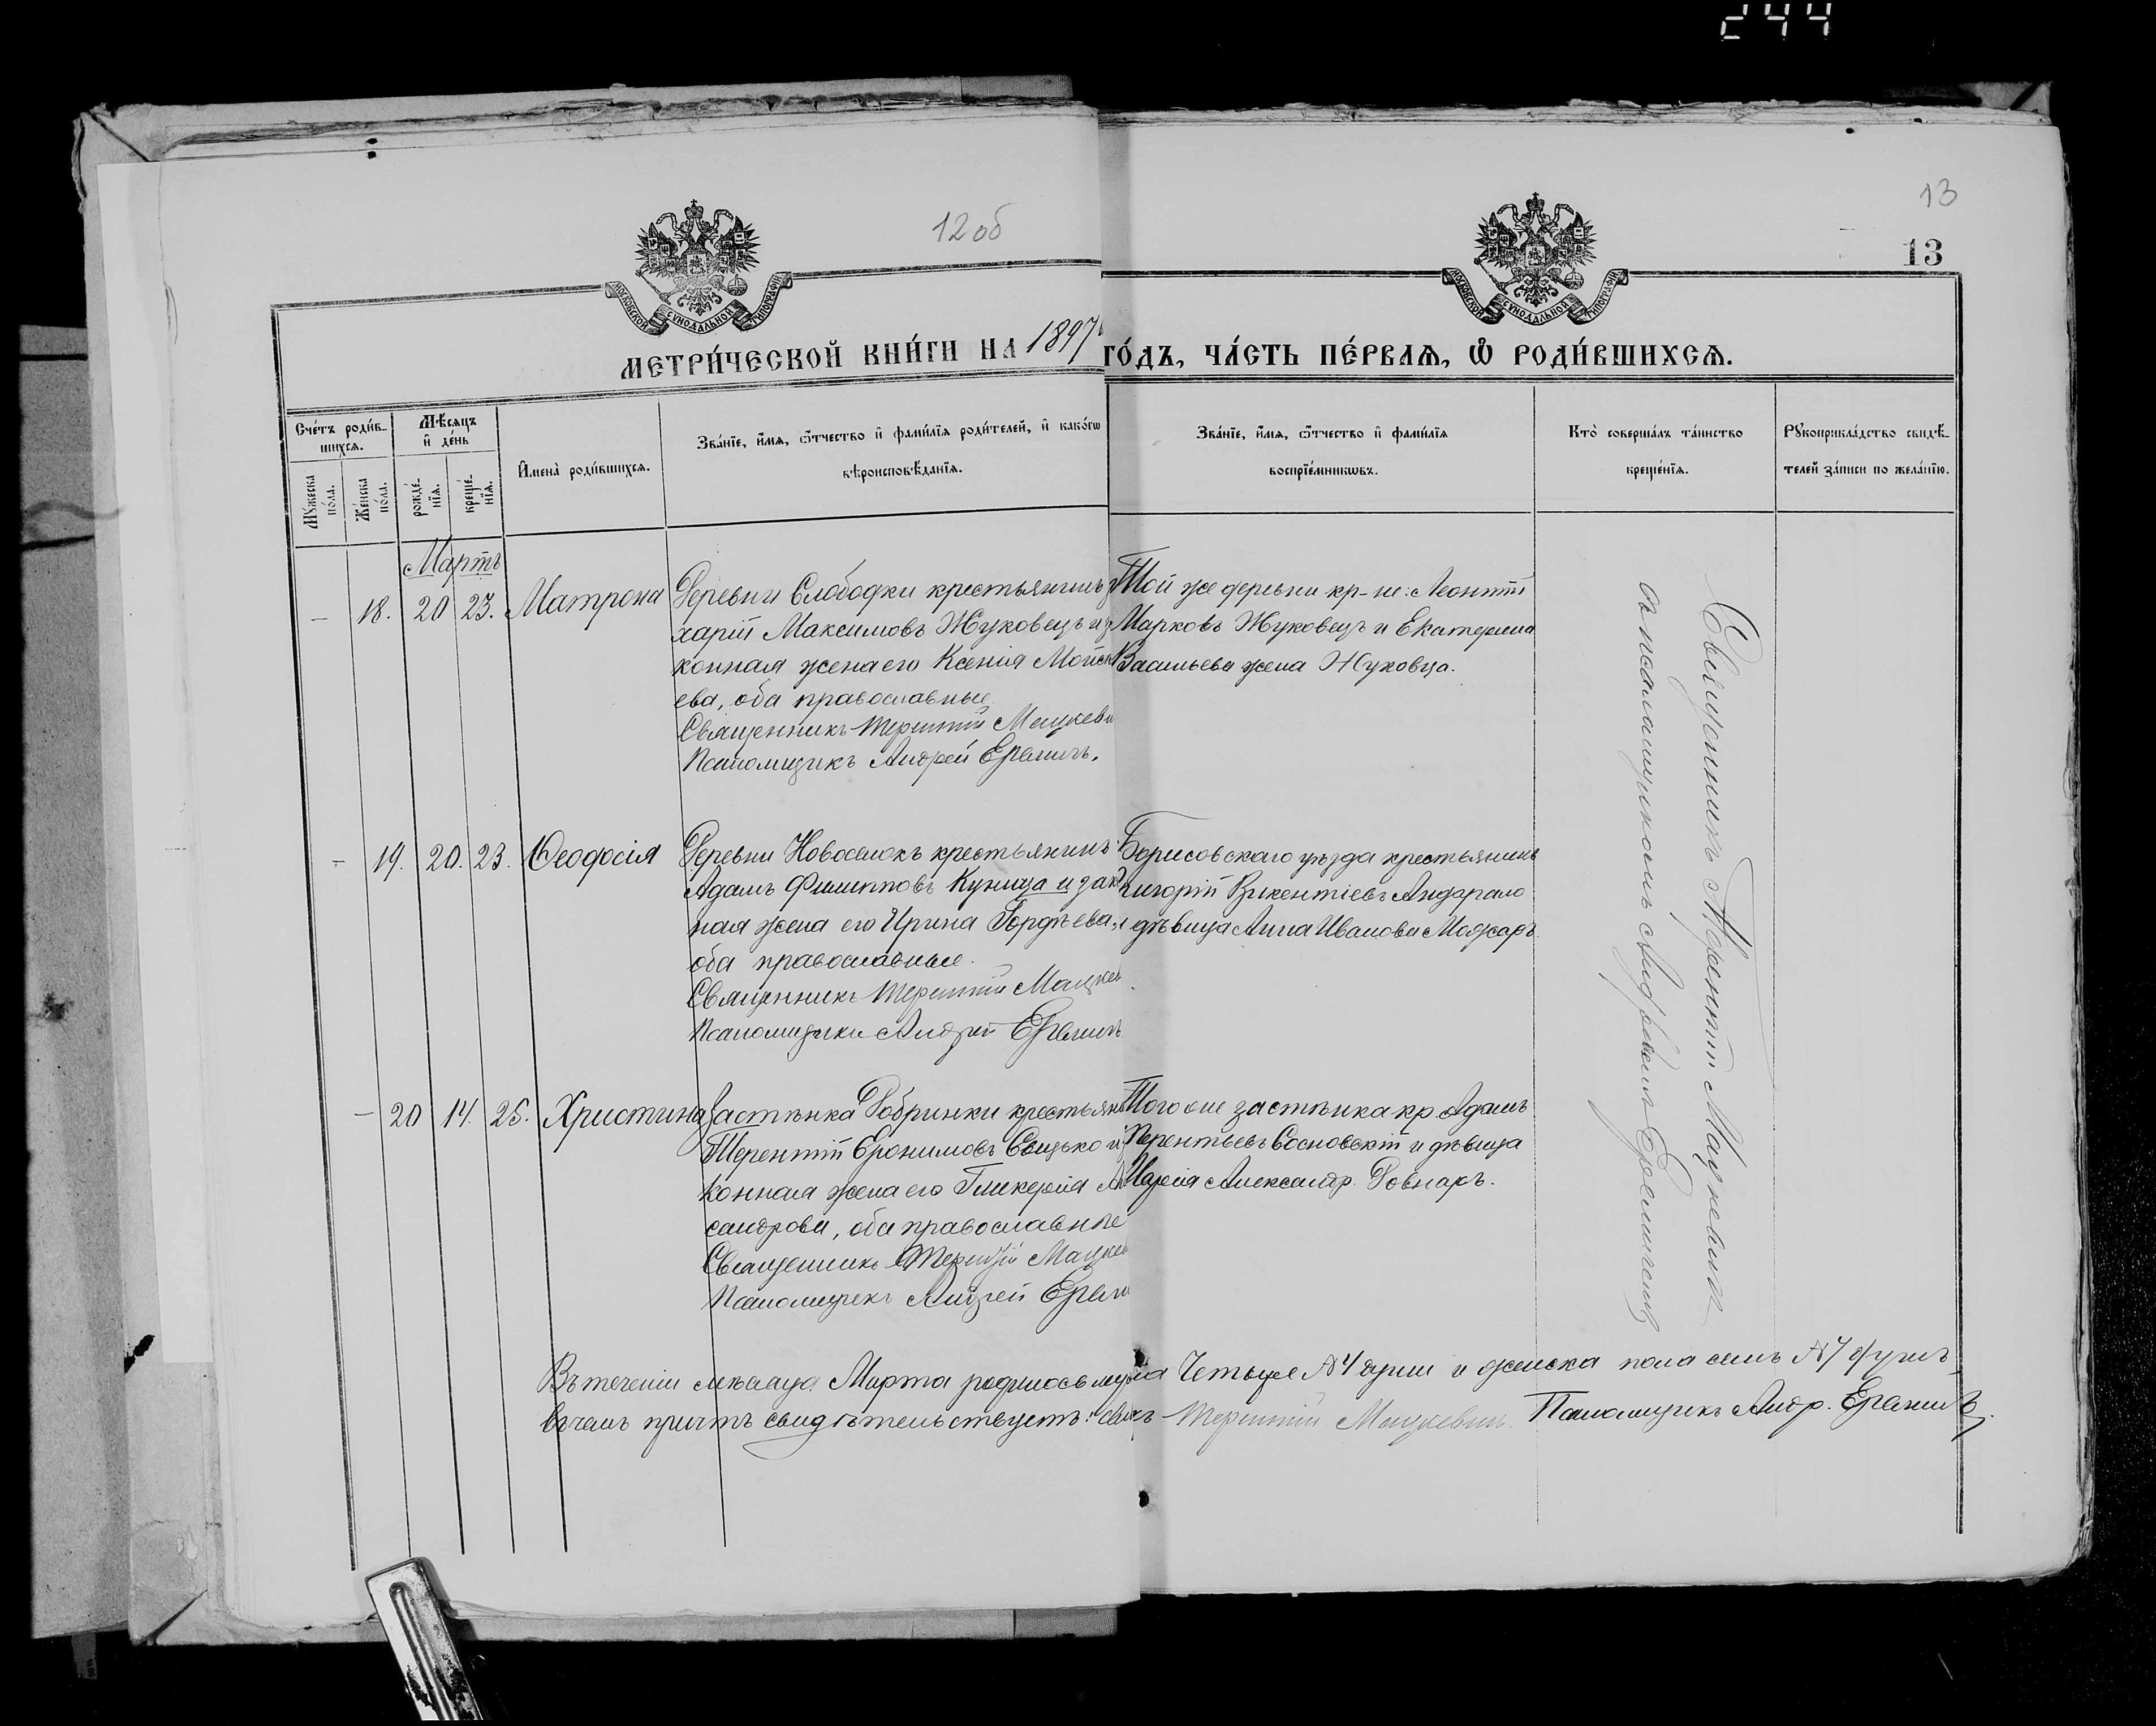 244
12 об
13
13
МОСКОВСКОЙ СѴНОДАЛЬНОЙ ТИПОГРАФІИ
МОСКОВСКОЙ СѴНОДАЛЬНОЙ ТИПОГРАФІИ
МЕТРИ́ЧЕСКОЙ КНИ́ГИ НА 1897
ГО́ДЪ, ЧА́СТЬ ПЕ́РВАЯ, Ѡ҆ РОДИ́ВШИХСЯ.
Сче́тъ роди́в-
шихся.
Мꙋ́жеска по́ла.
Же́нска по́ла.
Мѣ́сяцъ и҆ де́нь
рожде́-
нїя.
креще́-
нїя.
И҆мена̀ роди́вшихся.
Зва́нїе, и҆́мя, ѻ҆́тчество и҆ фами́лїя роди́телей, и҆ како́гѡ
вѣроисповѣ́данїя.
Зва́нїе, и҆́мя, ѻ҆́тчество и҆ фами́лїя
воспрїе́мникѡвъ.
Кто̀ соверша́лъ та́инство
креще́нїя.
Рꙋкоприкла́дство свидѣ́-
телей за́писи по жела́нїю.
Мартъ
- 18. 20 23. Матрона
Деревни Слободки крестьянинъ
харій Максимовъ Жуковецъ и
конная жена его Ксенія Мойс
ева, оба православные
Священникъ Терентій Мацкеви
Псаломщикъ Андрей Еремичъ.
Той же деревни кр-не: Леонтій
Марковъ Жуковецъ и Екатерина
Васильева жена Жуковца.
- 19. 20. 23. Ѳеодосія
Деревни Новоселокъ крестьянинъ
Адамъ Филипповъ Куница и зак
ная жена его Ирина Гордѣева,
оба православные.
Священникъ Терентій Мацкев
Псаломщикъ Андрей Еремичъ
Борисовскаго уѣзда крестьянинъ
Григорій Викентіевъ Андарало
и дѣвица Анна Иванова Можаръ.
- 20 14. 25. Христина
Застѣнка Добринки крестьян
Терентій Еронимовъ Свицько и
конная жена его Гликерія
сандрова, оба православные
Священникъ Терентій Мацкев
Псаломщикъ Андрей Ереми
Того же застѣнка кр. Адамъ
Терентьевъ Сосновскій и дѣвица
Марія Александр. Бовнаръ.
Священникъ Терентій Мацкевичъ
съ псаломщикомъ Андреемъ Еремичемъ
Въ теченіи мѣсяца Марта родилось муж
ка Четыре № 4 души и женска пола семь № 7 душъ
въ чемъ причтъ свидѣтельствуетъ: Свящ
къ Терентій Мацкевичъ. Псаломщикъ Андр. Еремичъ.